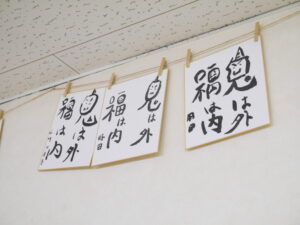 鬼は外
福は内
鬼は外
福は内
鬼は外
福は内